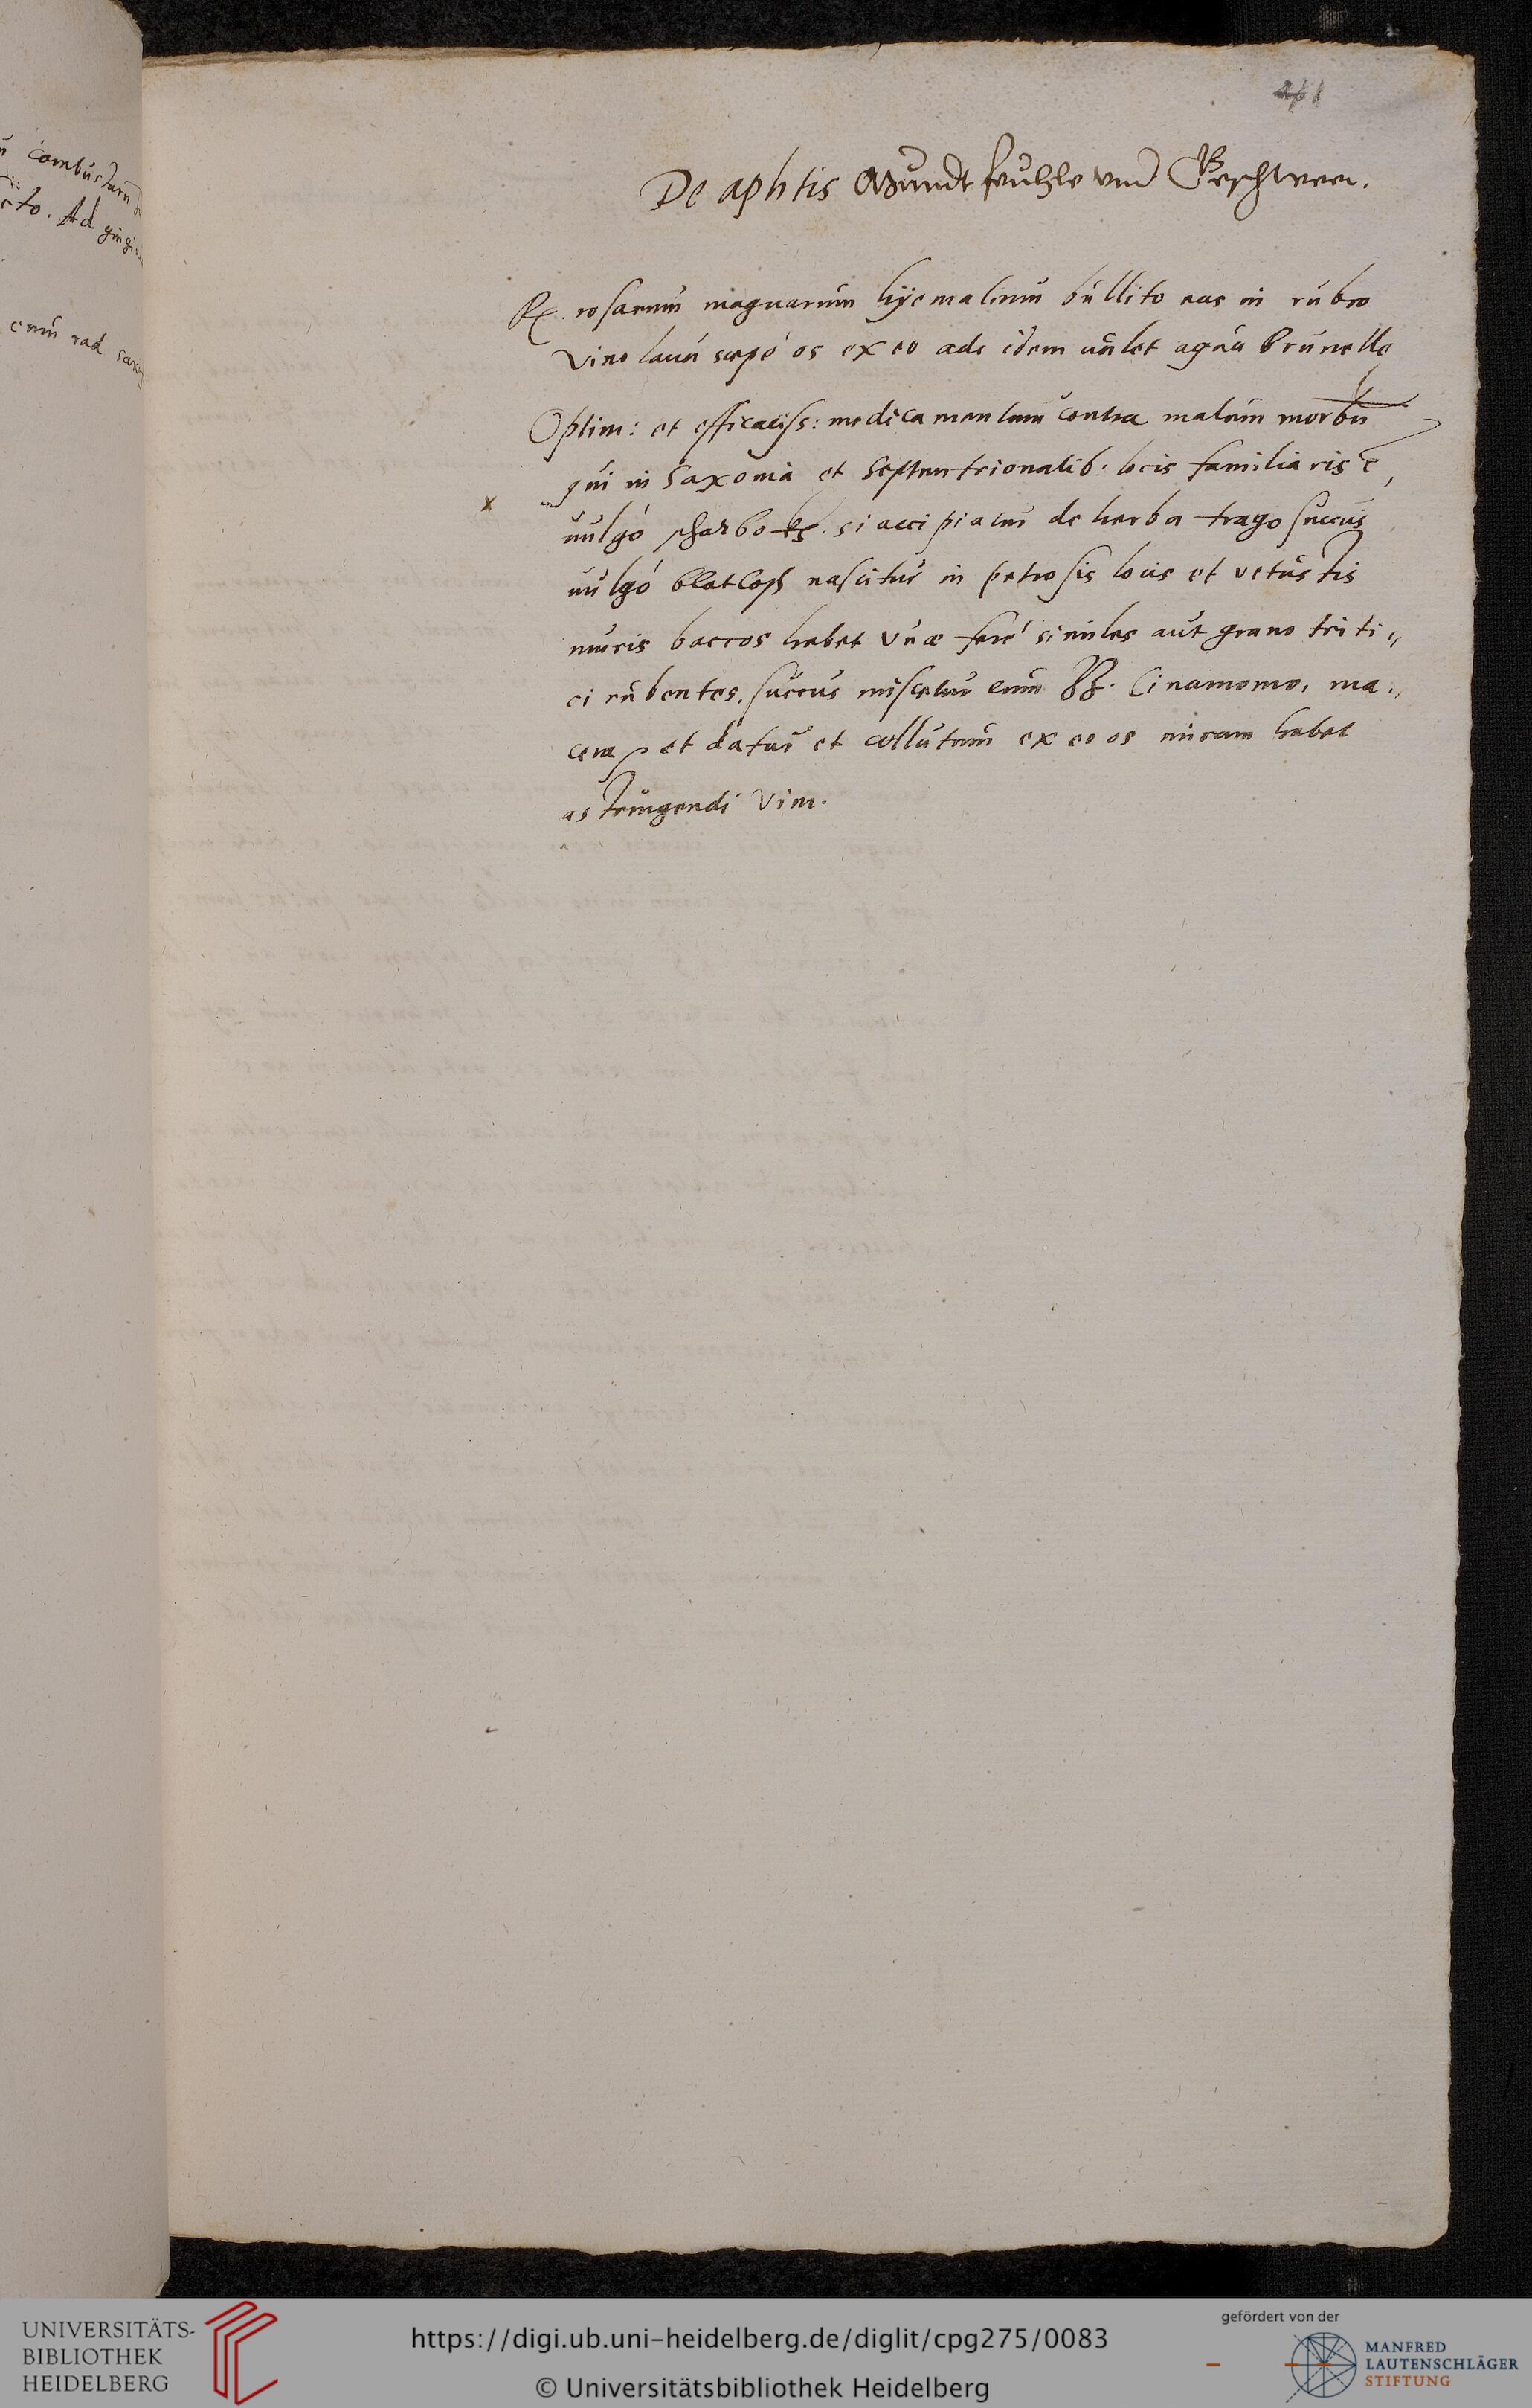 ū combustarū
cto. Ad gingi
cum rad sax
De aphtis Mundt feuhle vnd Geschweer.
℞. rosarum magnarum hyemalium bullito eas in rubro
vino laua saepè os ex eo ade idem ualet aqua Prunelle
Optim: et efficaciss: medicamentum contra malum morbū
qui in Saxonia et Septentrionalib. locis familiaris ē,
x
uulgò scharbock. si accipiatur de herba trago succus
uulgò blatlosz nascitur in petrosis locis et vetustis
muris baccos habet vuae ferè similes aut grano triti„
ci rubentes. succus miscetur cum Cinamomo, ma„
cera et datur et collutum ex eo os miram habet
astringendi vim.
UNIVERSITÄTS-
BIBLIOTHEK
HEIDELBERG
https://digi.ub.uni-heidelberg.de/diglit/cpg275/0083
© Universitätsbibliothek Heidelberg
gefördert von der
MANFRED
LAUTENSCHLÄGER
STIFTUNG